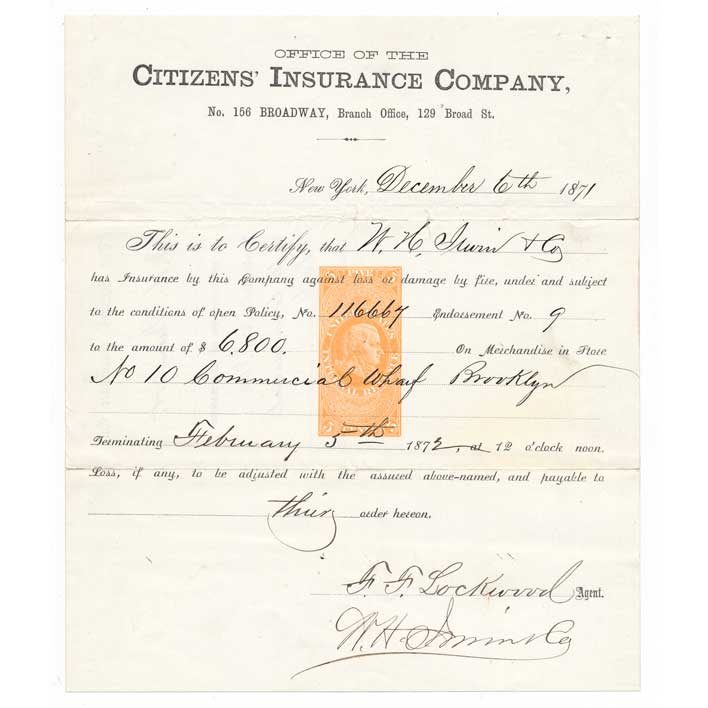 OFFICE OF THE
CITIZENS' INSURANCE COMPANY,
No. 156 BROADWAY, Branch Office, 129 Broad St.
New York, December 6th 1871
This is to Certify, that W. H. Irwin & Co
has Insurance by this Company against loss or damage by fire, under and subject
to the conditions of open Policy, No. 116667 Endorsement No. 9
to the amount of $ 6.800. On Merchandise in Store
No 10 Commercial Wharf Brooklyn
Terminating February 5th 1872, at 12 o'clock noon.
Loss, if any, to be adjusted with the assured above-named, and payable to
their order hereon.
F. F. Lockwood Agent.
W. H. Irwin & Co